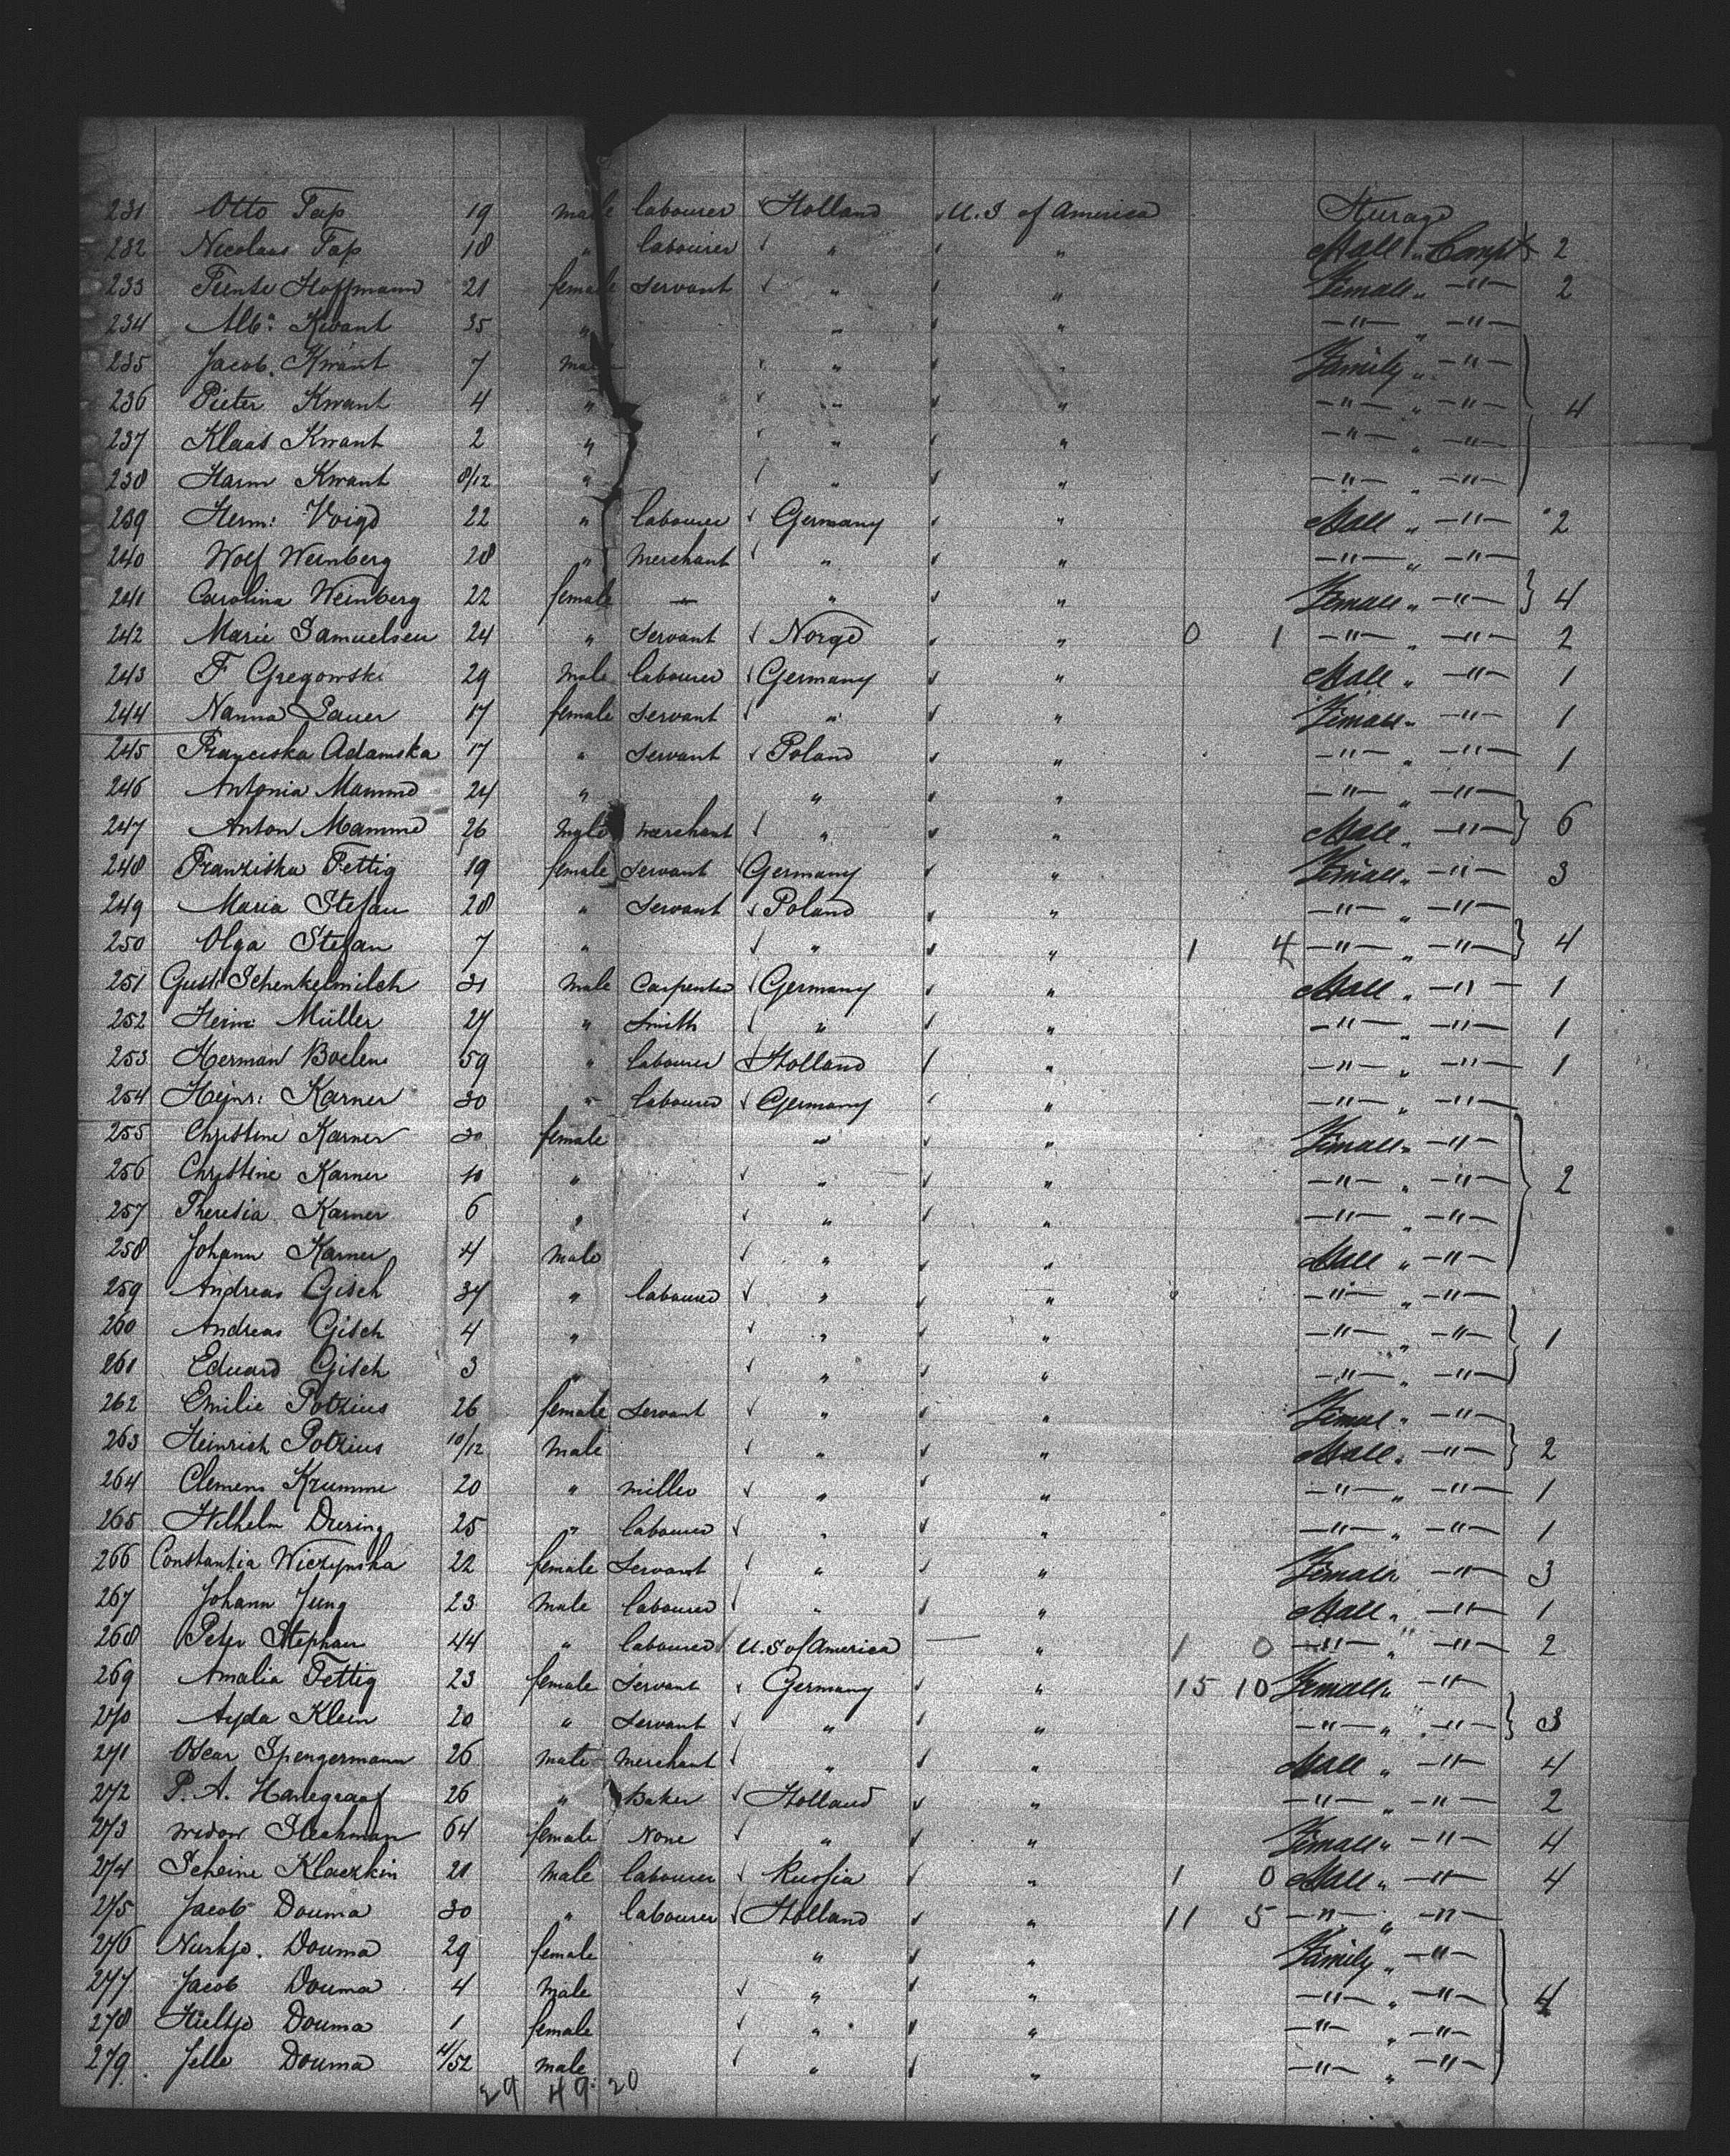 231 Otto Tap 19 male labourer Holland U.S of America Sturage
232 Nicolaas Tap 18 " labourer " " Male " Compt 2
233 Tjente Hoffmann 21 female Servant " " Female " —"— 2
234 Alb: Kwant 35 " " " —"— " —"—
235 Jacob. Kwant 7 male " " Family " —"—
236 Pieter Kwant 4 " " " —"— " —"— 4
237 Klaas Kwant 2 " " " —"— " —"—
238 Harm Kwant 8/12 " " " —"— " —"—
239 Herm: Voigd 22 " labourer Germany " Male " —"— 2
240 Wolf Weinberg 28 " merchant " " —"— " —"—
241 Carolina Weinberg 22 female — " " Female " —"— 4
242 Marie Samuelsen 24 " Servant Norge " 0 1 —"— " —"— 2
243 F Gregowski 29 Male labourer Germany " Male " —"— 1
244 Nanna Lauer 17 female Servant " " Female " —"— 1
245 Franciska Adamska 17 " Servant Poland " —"— " —"— 1
246 Antonia Mammd 24 " " " —"— " —"—
247 Anton Mammd 26 Male merchant " " Male " —"— 6
248 Franziska Fettig 19 female Servant Germany " Female " —"— 3
249 Maria Stefan 28 " Servant Poland " —"— " —"—
250 Olga Stefan 7 " " " 1 4 —"— " —"— 4
251 Gust: Schenkelmilch 31 Male Carpenter Germany " Male " —"— 1
252 Heinr: Müller 27 " Smith " " —"— " —"— 1
253 Herman Boelens 59 " labourer Holland " —"— " —"— 1
254 Heinr: Karner 30 " labourer Germany " —"— " —"—
255 Christine Karner 30 female " " Female " —"—
256 Christine Karner 10 " " " —"— " —"— 2
257 Theresia Karner 6 " " " —"— " —"—
258 Johann Karner 4 Male " " Male " —"—
259 Andreas Gisch 34 " labourer " " —"— " —"—
260 Andreas Gisch 4 " " " —"— " —"— 1
261 Eduard Gisch 3 " " " —"— " —"—
262 Emilie Potzius 26 female Servant " " Female " —"—
263 Heinrich Potzius 10/12 Male " " Male " —"— 2
264 Clemens Krumme 20 " miller " " —"— " —"— 1
265 Wilhelm Duering 25 " labourer " " —"— " —"— 1
266 Constantia Wiczynska 22 female Servant " " Female —"— 3
267 Johann Jung 23 Male labourer " " Male " —"— 1
268 Peter Stephan 44 " labourer U.S of America — " 1 0 —"— " —"— 2
269 Amalia Fettig 23 female Servant Germany " 15 10 Female " —"—
270 Ayda Klein 20 " Servant " " —"— " —"— 3
271 Oscar Spengermann 26 male merchant " " Male " —"— 4
272 P. A. Hanegraaf 26 " Baker Holland " —"— " —"— 2
273 widow Stechman 64 female None " " Female " —"— 4
274 Scheine Klaczkin 21 Male labourer Russia " 1 0 Male " —"— 4
275 Jacob Douma 30 " labourer Holland " 11 5 —"— " —"—
276 Nuskjo. Douma 29 female " " Family " —"—
277 Jacob Douma 4 Male " " —"— " —"— 4
278 Hieltjo Douma 1 female " " —"— " —"—
279. Jelle Douma 4/52 Male " " —"— " —"—
29 49 20